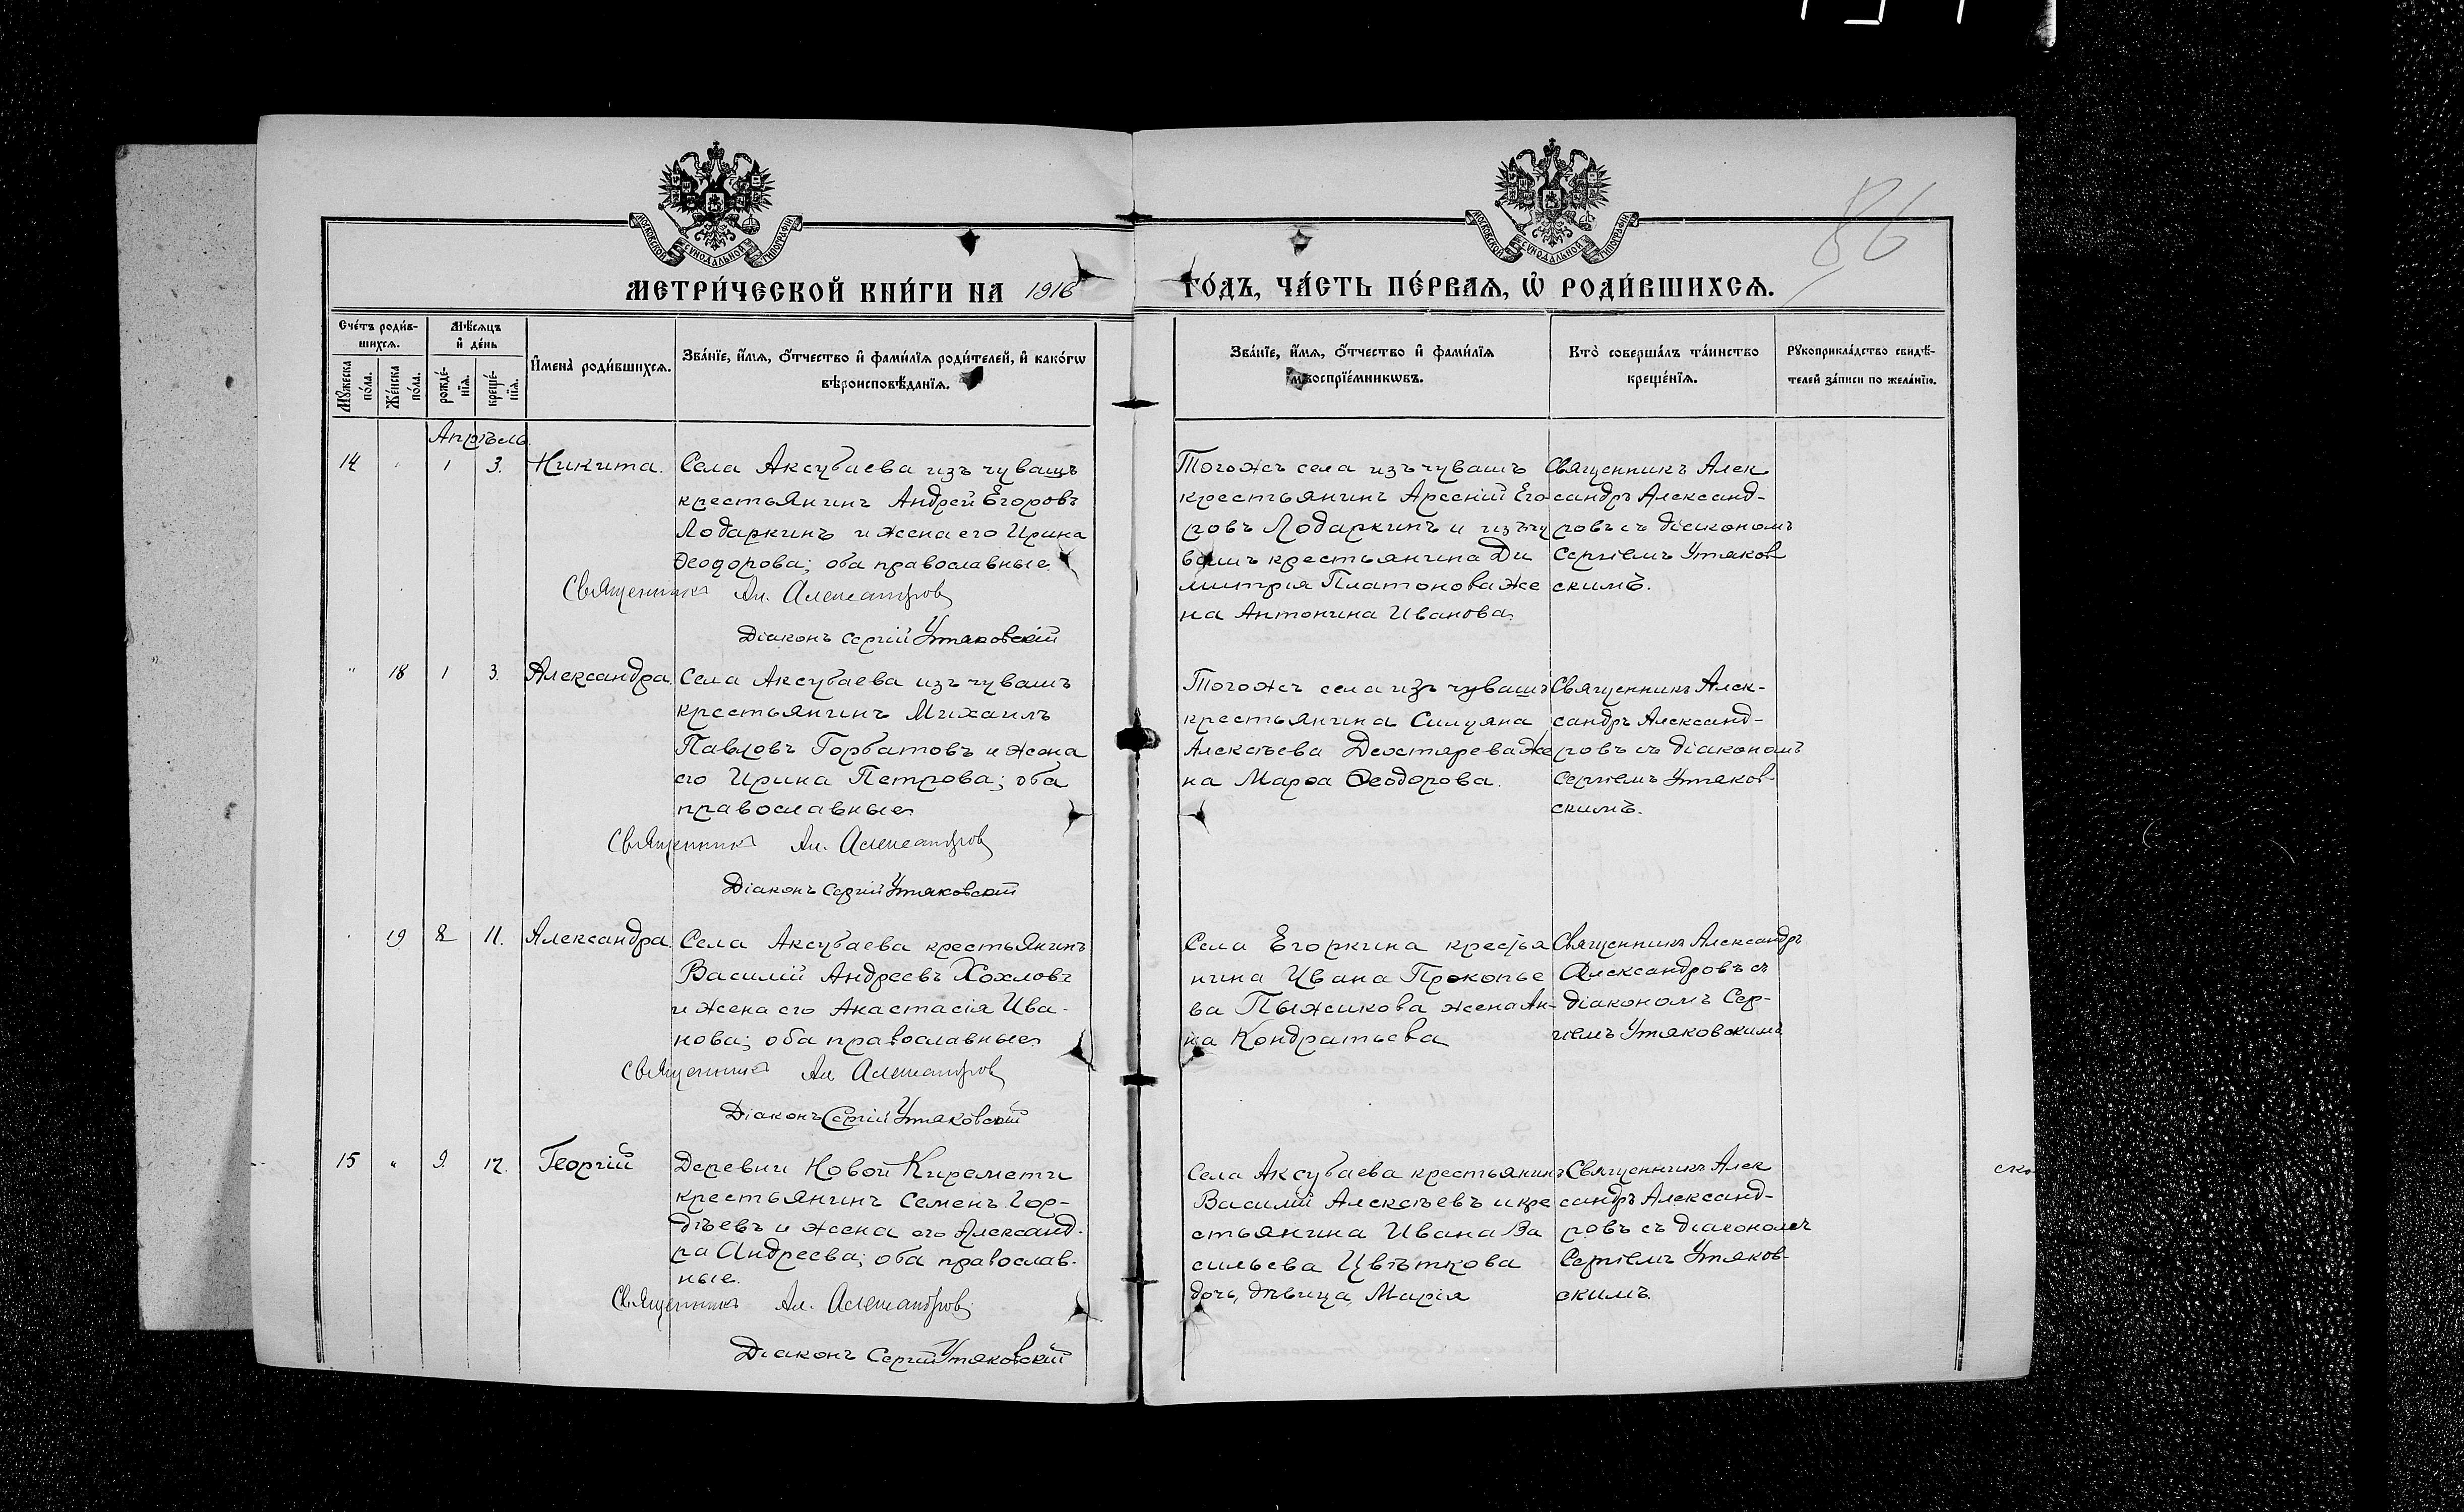 86
МОСКОВСКОЙ СѴНОДАЛЬНОЙ ТИПОГРАФІИ
МОСКОВСКОЙ СѴНОДАЛЬНОЙ ТИПОГРАФІИ
МЕТРИ́ЧЕСКОЙ КНИ́ГИ НА 1916 ГО́ДЪ, ЧА́СТЬ ПЕ́РВАЯ, Ѡ РОДИ́ВШИХСЯ.
Сче́тъ роди́в-
шихся.
Мꙋ́жеска
по́ла.
Же́нска
по́ла.
Мѣ́сяцъ
и҆ де́нь
рожде́-
нїя.
креще́-
нїя.
И҆мена̀ роди́вшихся.
Зва́нїе, и҆́мя, ѻ҆́тчество и҆ фами́лїя роди́телей, и҆ како́гѡ
вѣроисповѣ́данїя.
Зва́нїе, и҆́мя, ѻ҆́тчество и҆ фами́лїя
воспрїе́мникѡвъ.
Кто̀ соверша́лъ та́инство
креще́нїя.
Рꙋкоприкла́дство свидѣ́-
телей за́писи по жела́нїю.
Апрѣль.
14 " 1 3. Никита.
Села Аксубаева изъ чувашъ
крестьянинъ Андрей Егоровъ
Лодаркинъ и жена его Ирина
Ѳеодорова; оба православные.
Священникъ Ал. Александров
Діаконъ Сергій Утяковскій
Тогожъ села изъ чувашъ
крестьянинъ Арсеній Его
ровъ Лодаркинъ и изъ чу
вашъ крестьянина Ди
митрія Платонова же
на Антонина Иванова.
Священникъ Алек
сандръ Александ-
ровъ съ діакономъ
Сергіемъ Утяков
скимъ.
" 18 1 3. Александра.
Села Аксубаева изъ чувашъ
крестьянинъ Михаилъ
Павловъ Горбатовъ и жена
его Ирина Петрова; оба
православные.
Священникъ Ал. Александров
Діаконъ Сергій Утяковскій
Тогожъ села изъ чувашъ
крестьянина Силуяна
Алексѣева Дехтярева же
на Марѳа Ѳеодорова.
Священникъ Алек-
сандръ Александ-
ровъ съ діакономъ
Сергіемъ Утяков-
скимъ.
" 19 8 11. Александра
Села Аксубаева крестьянинъ
Василій Андреевъ Хохловъ
и жена его Анастасія Ива-
нова; оба православные.
Священникъ Ал. Александров
Діаконъ Сергій Утяковскій
Села Егоркина крестья
нина Ивана Прокопье
ва Пыжикова жена Ан-
на Кондратьева
Священникъ Александръ
Александровъ съ
діакономъ Сер-
гіемъ Утяковскимъ
15 " 9. 12. Георгій
Деревни Новой Киремети
крестьянинъ Семенъ Гор-
дѣевъ и жена его Александ-
ра Андреева; оба православ-
ные.
Священникъ Ал. Александров
Діаконъ Сергій Утяковскій
Села Аксубаева крестьянинъ
Василій Алексѣевъ и кре
стьянина Ивана Ва
сильева Цвѣткова
дочь, дѣвица Марія
Священникъ Алек
сандръ Александ-
ровъ съ діакономъ
Сергіемъ Утяков-
скимъ.